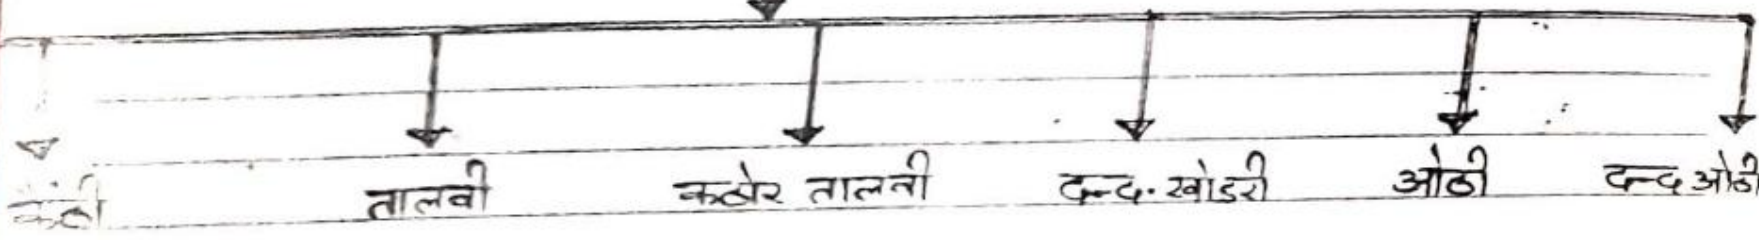 तालवी कठोर तालवी दन्द. खोडरी ओठी दन्द ओठी